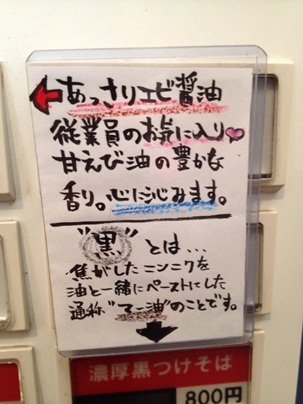 あっさりエビ醤油
従業員のお気に入り
甘えび油の豊かな
香り。心に沁みます。
"黒"とは...
焦がしたニンニクを
油と一緒にペーストにした
通称"マー油"のことです。
濃厚黒つけそば
800円